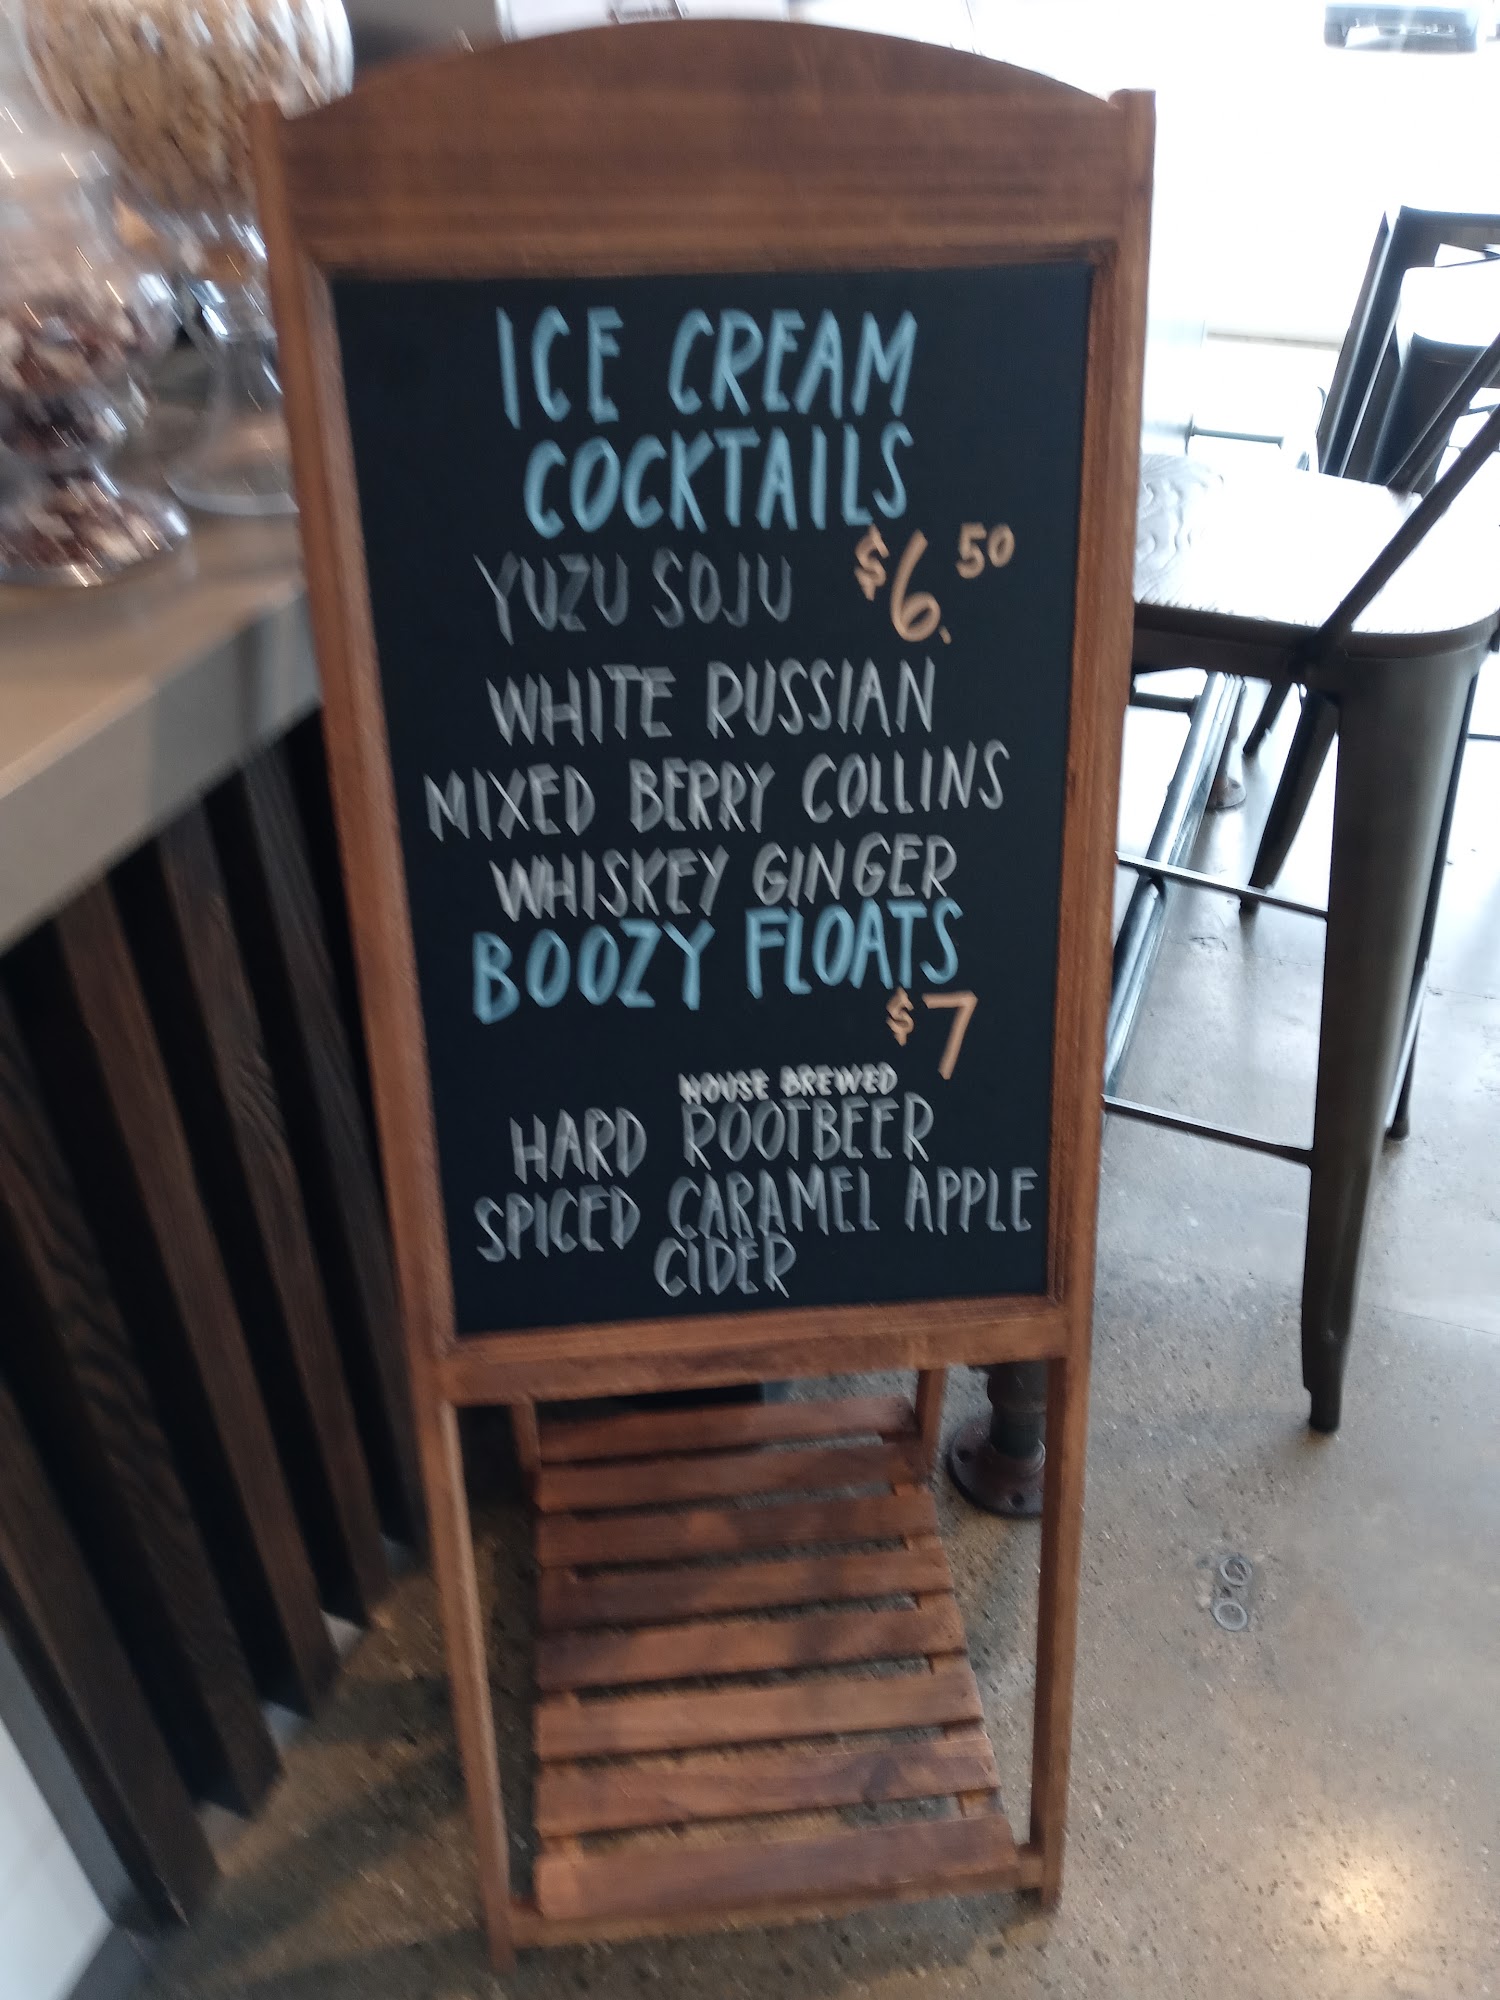 ICE CREAM
COCKTAILS
YUZU SOJU $6.50
WHITE RUSSIAN
MIXED BERRY COLLINS
WHISKEY GINGER
BOOZY FLOATS
$7
HOUSE BREWED
HARD ROOTBEER
SPICED CARAMEL APPLE
CIDER